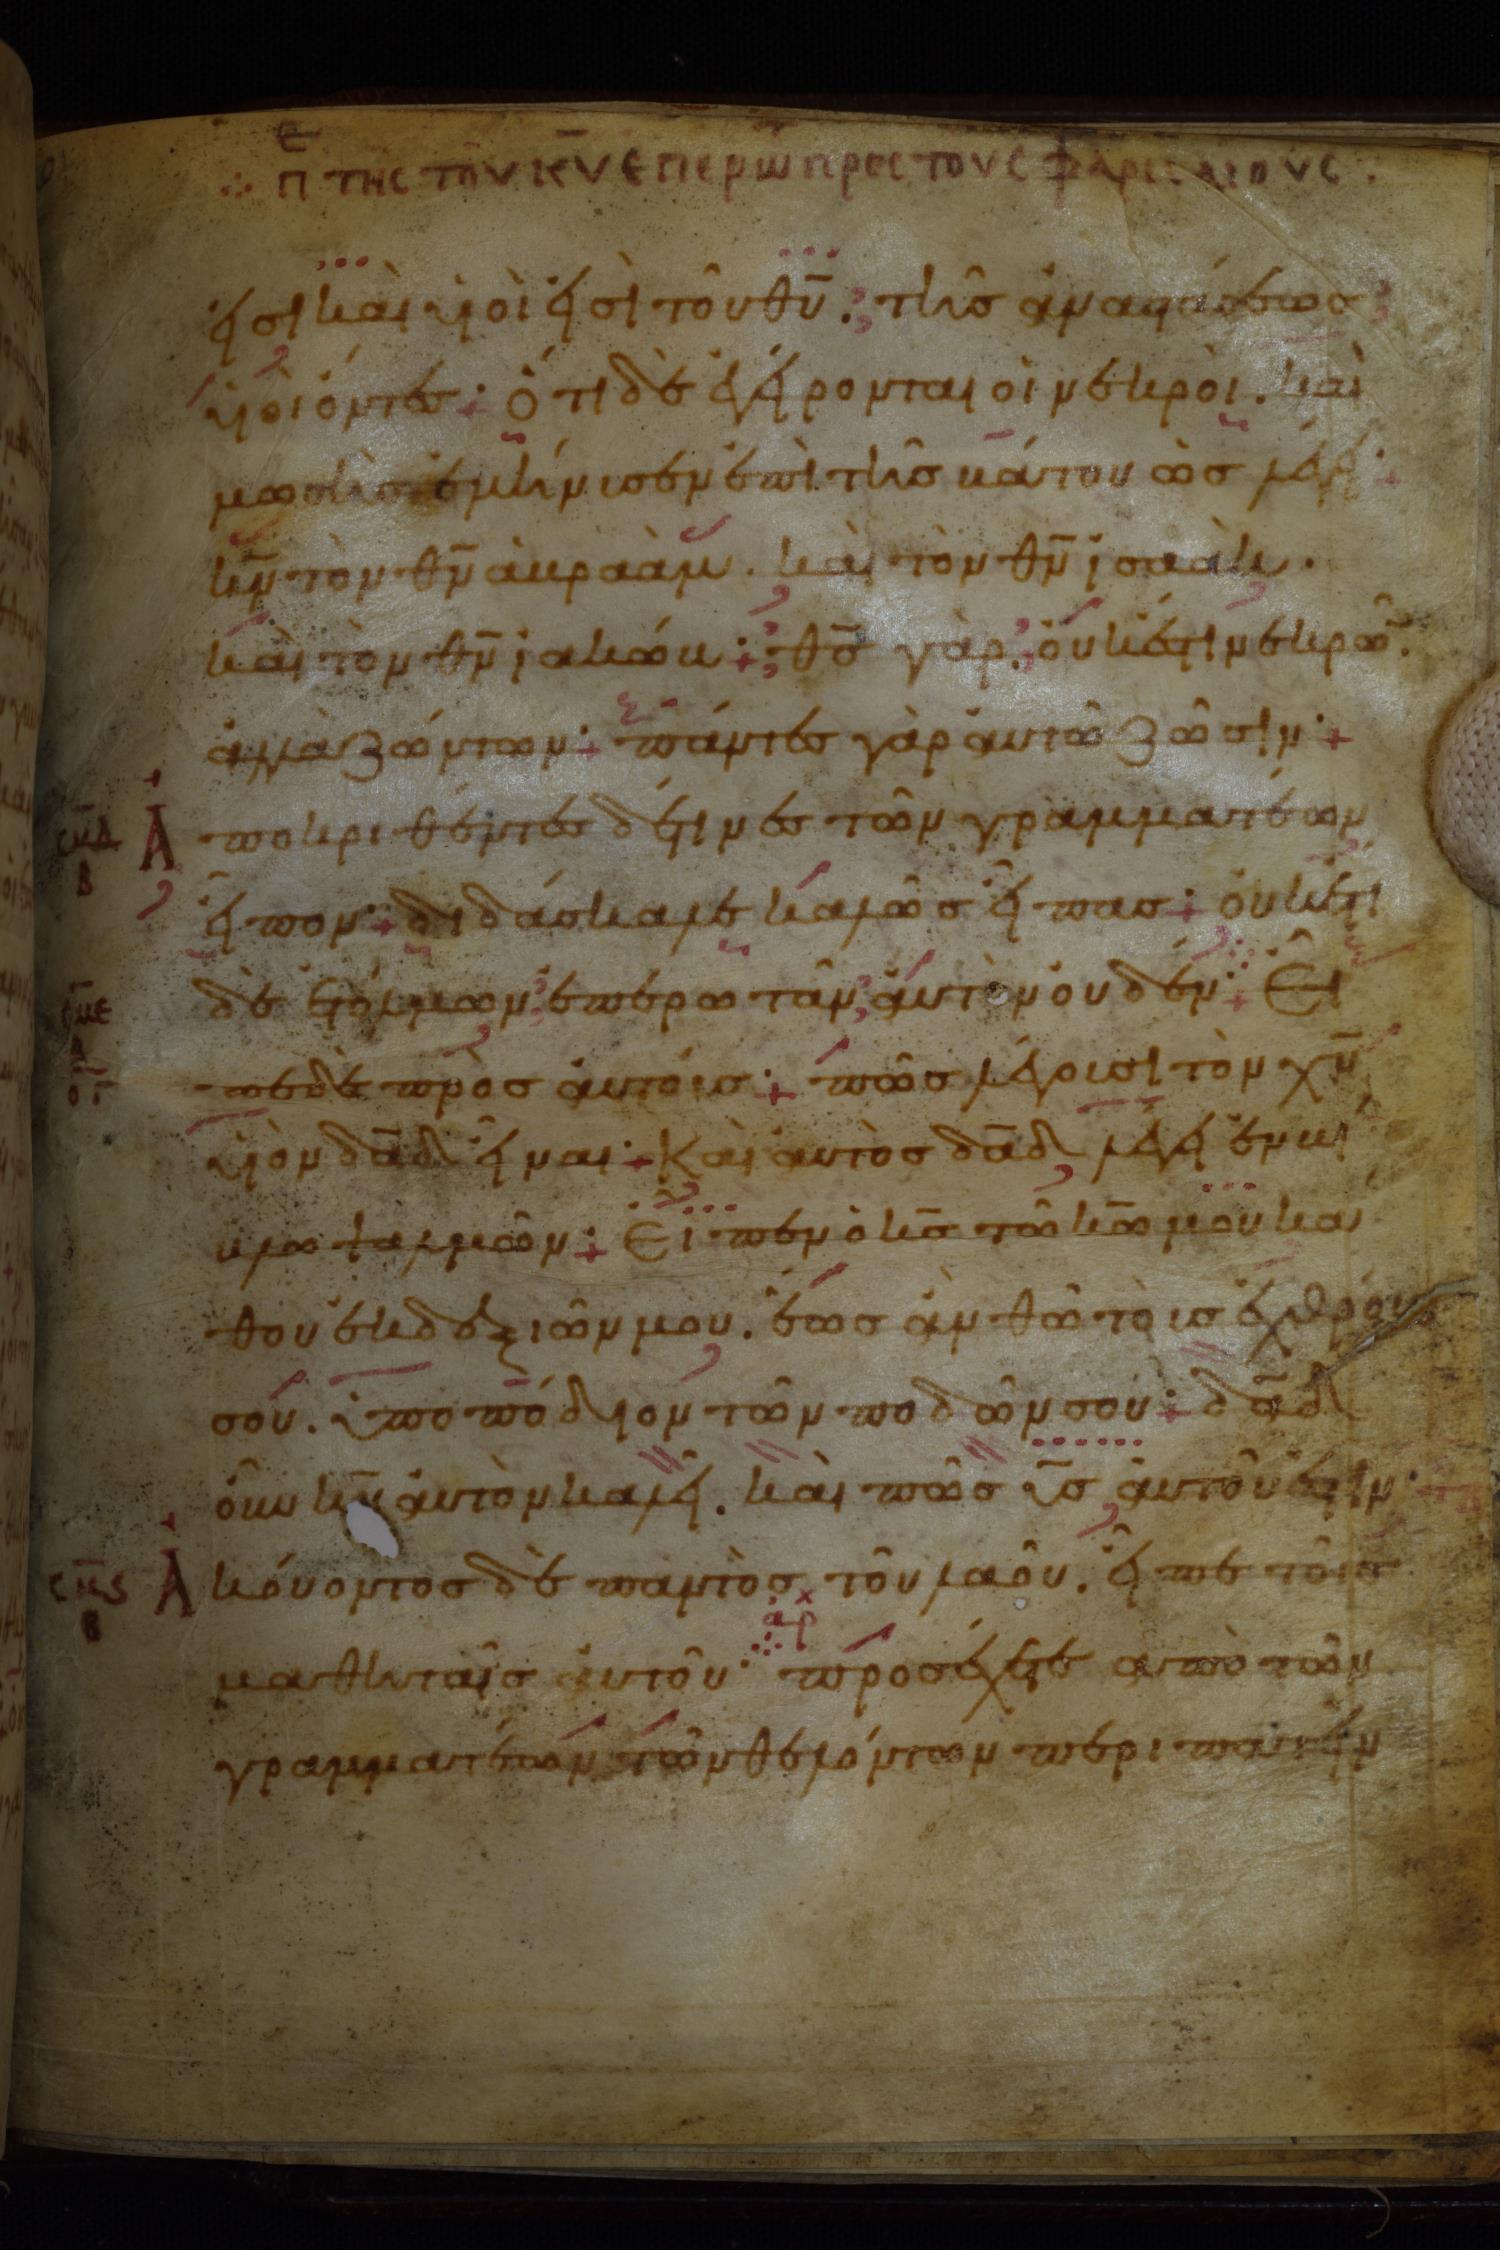 π̅ε̅ της του κ̅υ̅ επερωτησεως προς τους φαρισαιους
ἐισι και υἱοι ἐισι του θ̅υ̅. της ἀναστάσεως
υἱοι όντες· ὅτι δε ἐγείρονται οἱ νεκροι. και
μωσης ἐμήνυσεν ἐπι της βάτου ὡς λέγει·
κ̅ν̅ τον θ̅ν̅ ἀβρααμ. και τον θ̅ν̅ ἰσαακ.
και τον θ̅ν̅ ἰακώβ· θ̅ς̅ γαρ. ὀυκ ἔστι νεκρω̅.
ἀλλα ζώντων· πάντες γαρ ἀυτω ζωσιν·
σ̅μ̅δ̅
Α
ποκριθέντες δέ τινες των γραμματέων
β
εἶπον· διδάσκαλε καλως εἶπας· ὀυκέτι
δε ἐτόλμων ἐπερωταν ἀυτον ὀυδέν· Εἶ
σ̅μ̅ε̅
πε δε προς ἀυτόις· πως λέγουσι τον χ̅ν̅
υἱον δ̅α̅δ̅ εἶναι· Και ἀυτος δ̅α̅δ̅ λέγει ἐν βί
βλω ψαλμων· Εἶπεν ὁ κ̅ς̅ τω κ̅ω̅ μου κά
θου ἐκ δεξιων μου. ἕως ἀν θω τοις ἐχθρόυς
σου. ὑποπόδιον των ποδων σου· δ̅α̅δ̅
ὀυν κ̅ν̅ ἀυτον καλει. και πως υ̅ς̅ ἀυτου ἐστιν·
σ̅μ̅ς̅
Α
κόυοντος δε παντος του λαου. εἶπε τοις
β
ἀρχ
μαθηταις ἀυτου· προσέχετε ἀπο των
γραμματέων των θελόντων περιπατειν